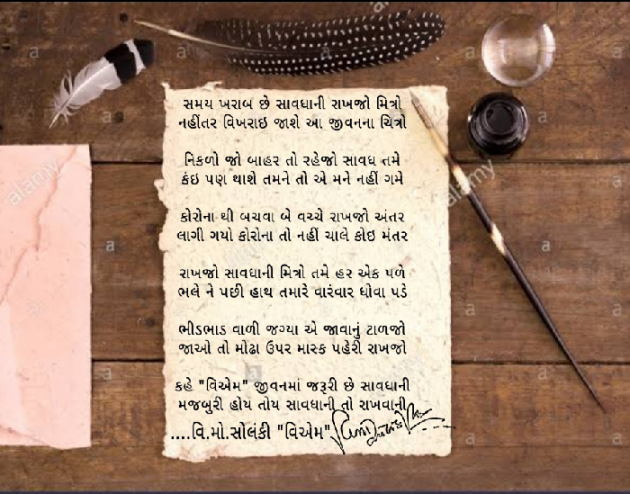 સમય ખરાબ છે સાવધાની રાખજો મિત્રો
નહીંતર વિખરાઇ જાશે આ જીવનના ચિત્રો
નિકળો જો બાહર તો રહેજો સાવધ તમે
કંઇ પણ થાશે તમને તો એ મને નહીં ગમે
કોરોના થી બચવા બે વચ્ચે રાખજો અંતર
લાગી ગયો કોરોના તો નહીં ચાલે કોઇ મંતર
રાખજો સાવધાની મિત્રો તમે હર એક પળે
ભલે ને પછી હાથ તમારે વારંવાર ધોવા પડે
ભીડભાડ વાળી જગ્યા એ જાવાનું ટાળજો
જાઓ તો મોઢા ઉપર માસ્ક પહેરી રાખજો
કહે "વિએમ" જીવનમાં જરૂરી છે સાવધાની
મજબુરી હોય તોય સાવધાની તો રાખવાની
....વિ.મો.સોલંકી "વિએમ"
alamy
alamy